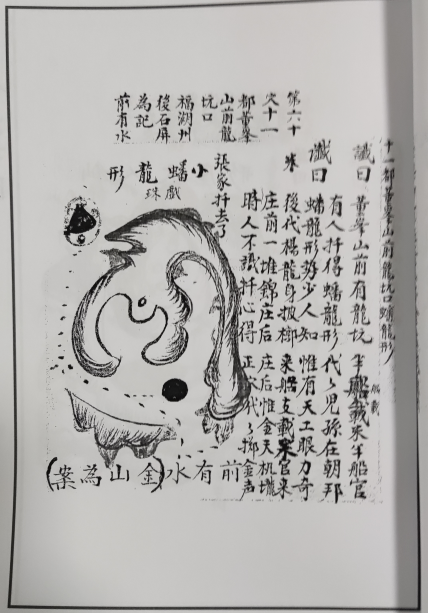 十一都黄峯山前龍坑口蟠龍形
讖曰 黄峯山前有龍坑 半船載米半船官
有人扦得蟠龍形 代〻兒孫在朝邦
讖曰 蟠龍形势少人知 惟有天工眼力奇
後代楊龍身披榔 来船支載官来
庄前一堆錦庄后 庄后惟金天机壠
時人不識扦心得 正穴代〻擲金声
第六十
穴十一
都黄峯
山前龍
坑口
福湖州
後石屏
為記
前有水
張家扦去了
小蟠龍形
戲珠
前有水(金山為案)